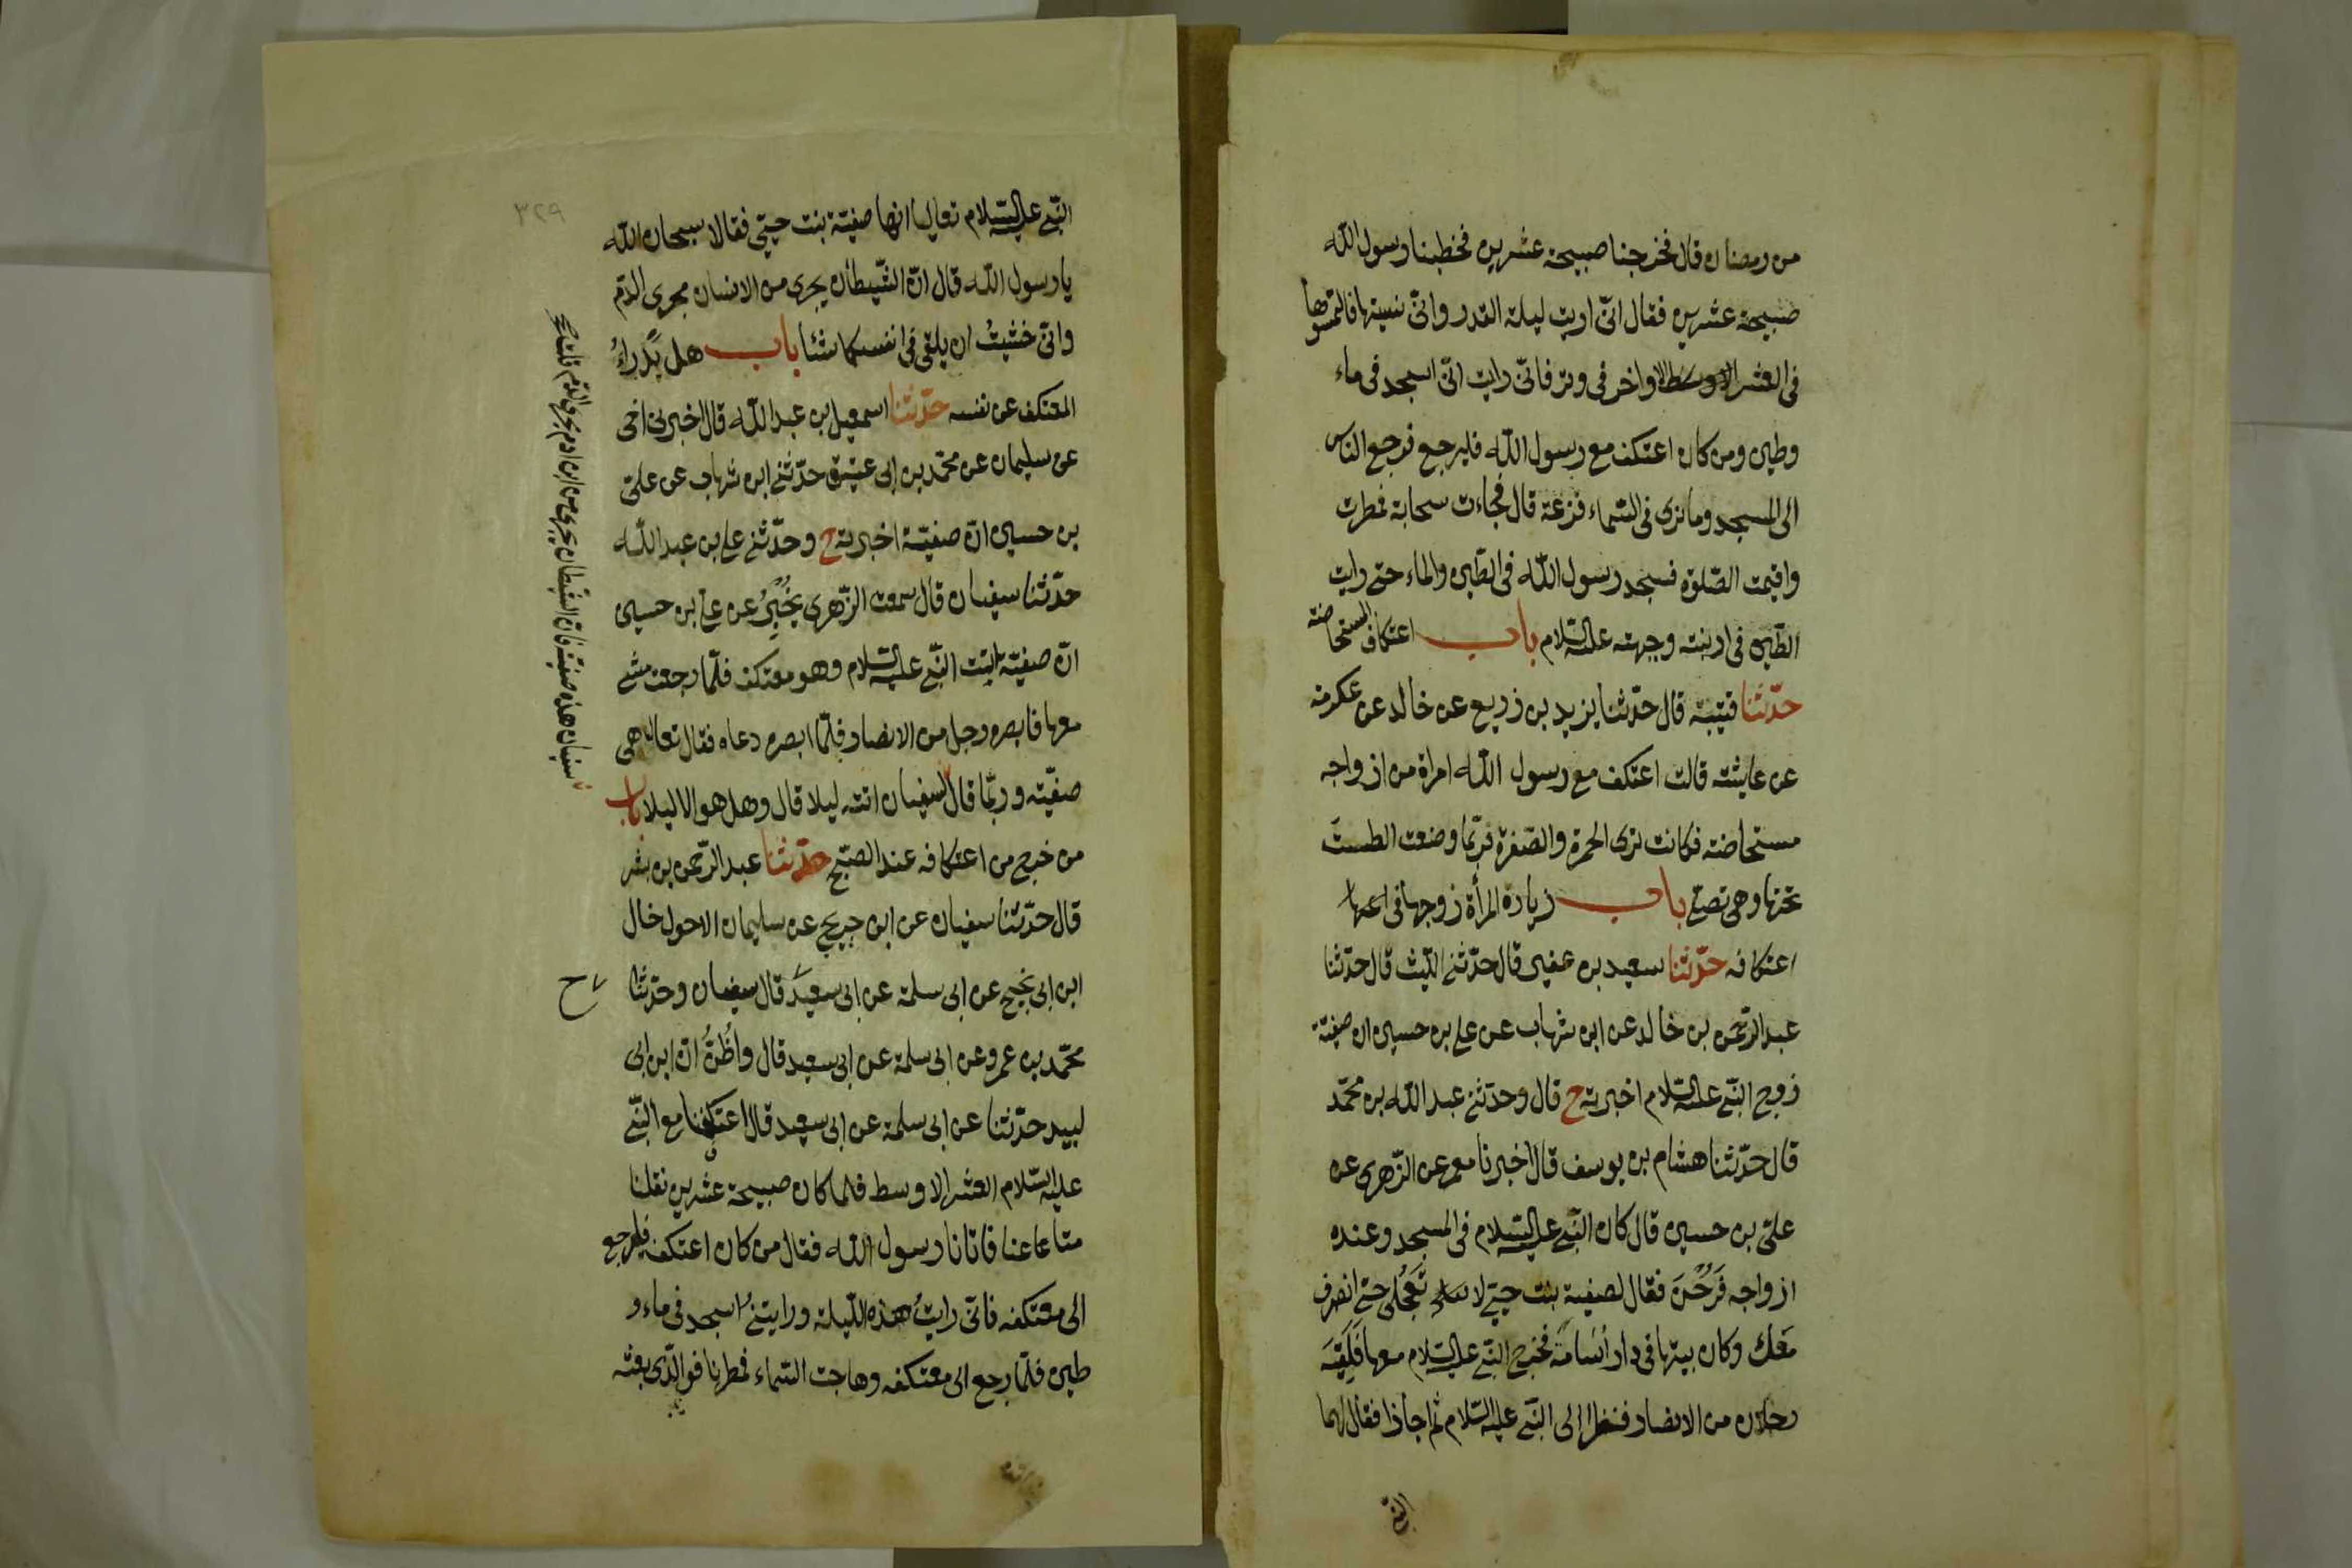 من رمضان قال فخرجنا صبيحة عشرين فخطبنا رسول الله
صبيحة عشرين فقال انّى اريت ليلة القدر وانّى نسيتها فالتمسوها
فى العشر الاواخر فى وتر فانّى رايت انّى اسجد فى ماء
وطين ومن كان اعتكف مع رسول الله فليرجع فرجع الناس
الى المسجد وما نرى فى السّماء قزعة قال فجاءت سحابة فمطرت
واقيمت الصّلوة فسجد رسول الله فى الطّين والماء حتى رايت
الطّين فى ارنبته وجبهته عليه السّلام باب اعتكاف المستحاضة
حدّثنا قتيبة قال حدّثنا يزيد بن زريع عن خالد عن عكرمة
عن عايشة قالت اعتكف مع رسول الله امراة من ازواجه
مستحاضة فكانت ترى الحمرة والصّفرة فربّما وضعت الطست
تحتها وهى تصلّى باب زيارة المرأة زوجها فى
اعتكافه حدّثنا سعيد بن عفير قال حدّثنى اللّيث قال حدّثنا
عبد الرّحمن بن خالد عن ابن شهاب عن على بن حسين ان صفيّة
زوج النّبى عليه السّلام اخبرته ح قال وحدّثنى عبد الله بن محمّد
قال حدّثنا هشام بن يوسف قال اخبرنا معمر عن الزّهرى عن
علىّ بن حسين قال كان النّبى عليه السّلام فى المسجد وعنده
ازواجه فَرُحْنَ فقال لصفية بنت حيىّ لا تَعْجَلى حتى انصرف
مَعَكِ وكان بيتها فى دار أُسَامَةَ فخرج النّبى عليه السّلام معها فَلَقِيَهُ
رجلان من الانصار فنظرا الى النّبى عليه السّلام ثم اجازا فقال لهما
النّبى
٣٢٩
النّبى عليه السّلام تعاليا انها صفيّة بنت حيىّ فقالا سبحان الله
يا رسول الله قال انّ الشّيطان يجرى من الانسان مجرى الدّم
وانّى خشيتُ ان يلقى فى انفسكما شئا باب هل يَدْراءُ
المعتكف عن نفسه حدّثنا اسمعيل بن عبد الله قال اخبرنى اخى
عن سليمان عن محمّد بن ابى عتيق حدّثنى ابن شهاب عن علىّ
بن حسين انّ صفيّة اخبرته ح وحدّثنى على بن عبد الله
حدّثنا سفيان قال سمعت الزّهرى يُخْبِرُ عن على بن حسين
انّ صفيّة اتيت النّبى عليه السّلام وهو معتكف فلمّا رجعت مشى
معها فابصره رجل من الانصار فلمّا ابصره دعاه فقال تعال هى
صفيّة وربّما قال سفيان هذه صفيّة فانّ الشّيطان يجرى من ابن ادم مجرى الدّم قلت
لسفيان اتته ليلا قال وهل هو الا ليلا باب
من خرج من اعتكافه عند الصّبح حدّثنا عبد الرّحمن بن بشر
قال حدّثنا سفيان عن ابن جريج عن سليمان الاحول خال
ابن ابى نجيح عن ابى سلمة عن ابى سعيد قال سفيان وحدّثنا
ح
محمّد بن عمرو عن ابى سلمة عن ابى سعيد قال واظُنُّ انّ ابن ابى
لبيد حدّثنا عن ابى سلمة عن ابى سعيد قال اعتكفنا مع النّبى
عليه السّلام العشر الاوسط فلما كان صبيحة عشرين نقلنا
متاعنا فاتانا رسول الله فقال من كان اعتكف فليرجع
الى معتكفه فانّى رايتُ هذه اللّيلة ورايتنى اسجد فى ماء و
طين فلمّا رجع الى معتكفه وهاجت السّماء فمطرنا فوالّذى بعثه